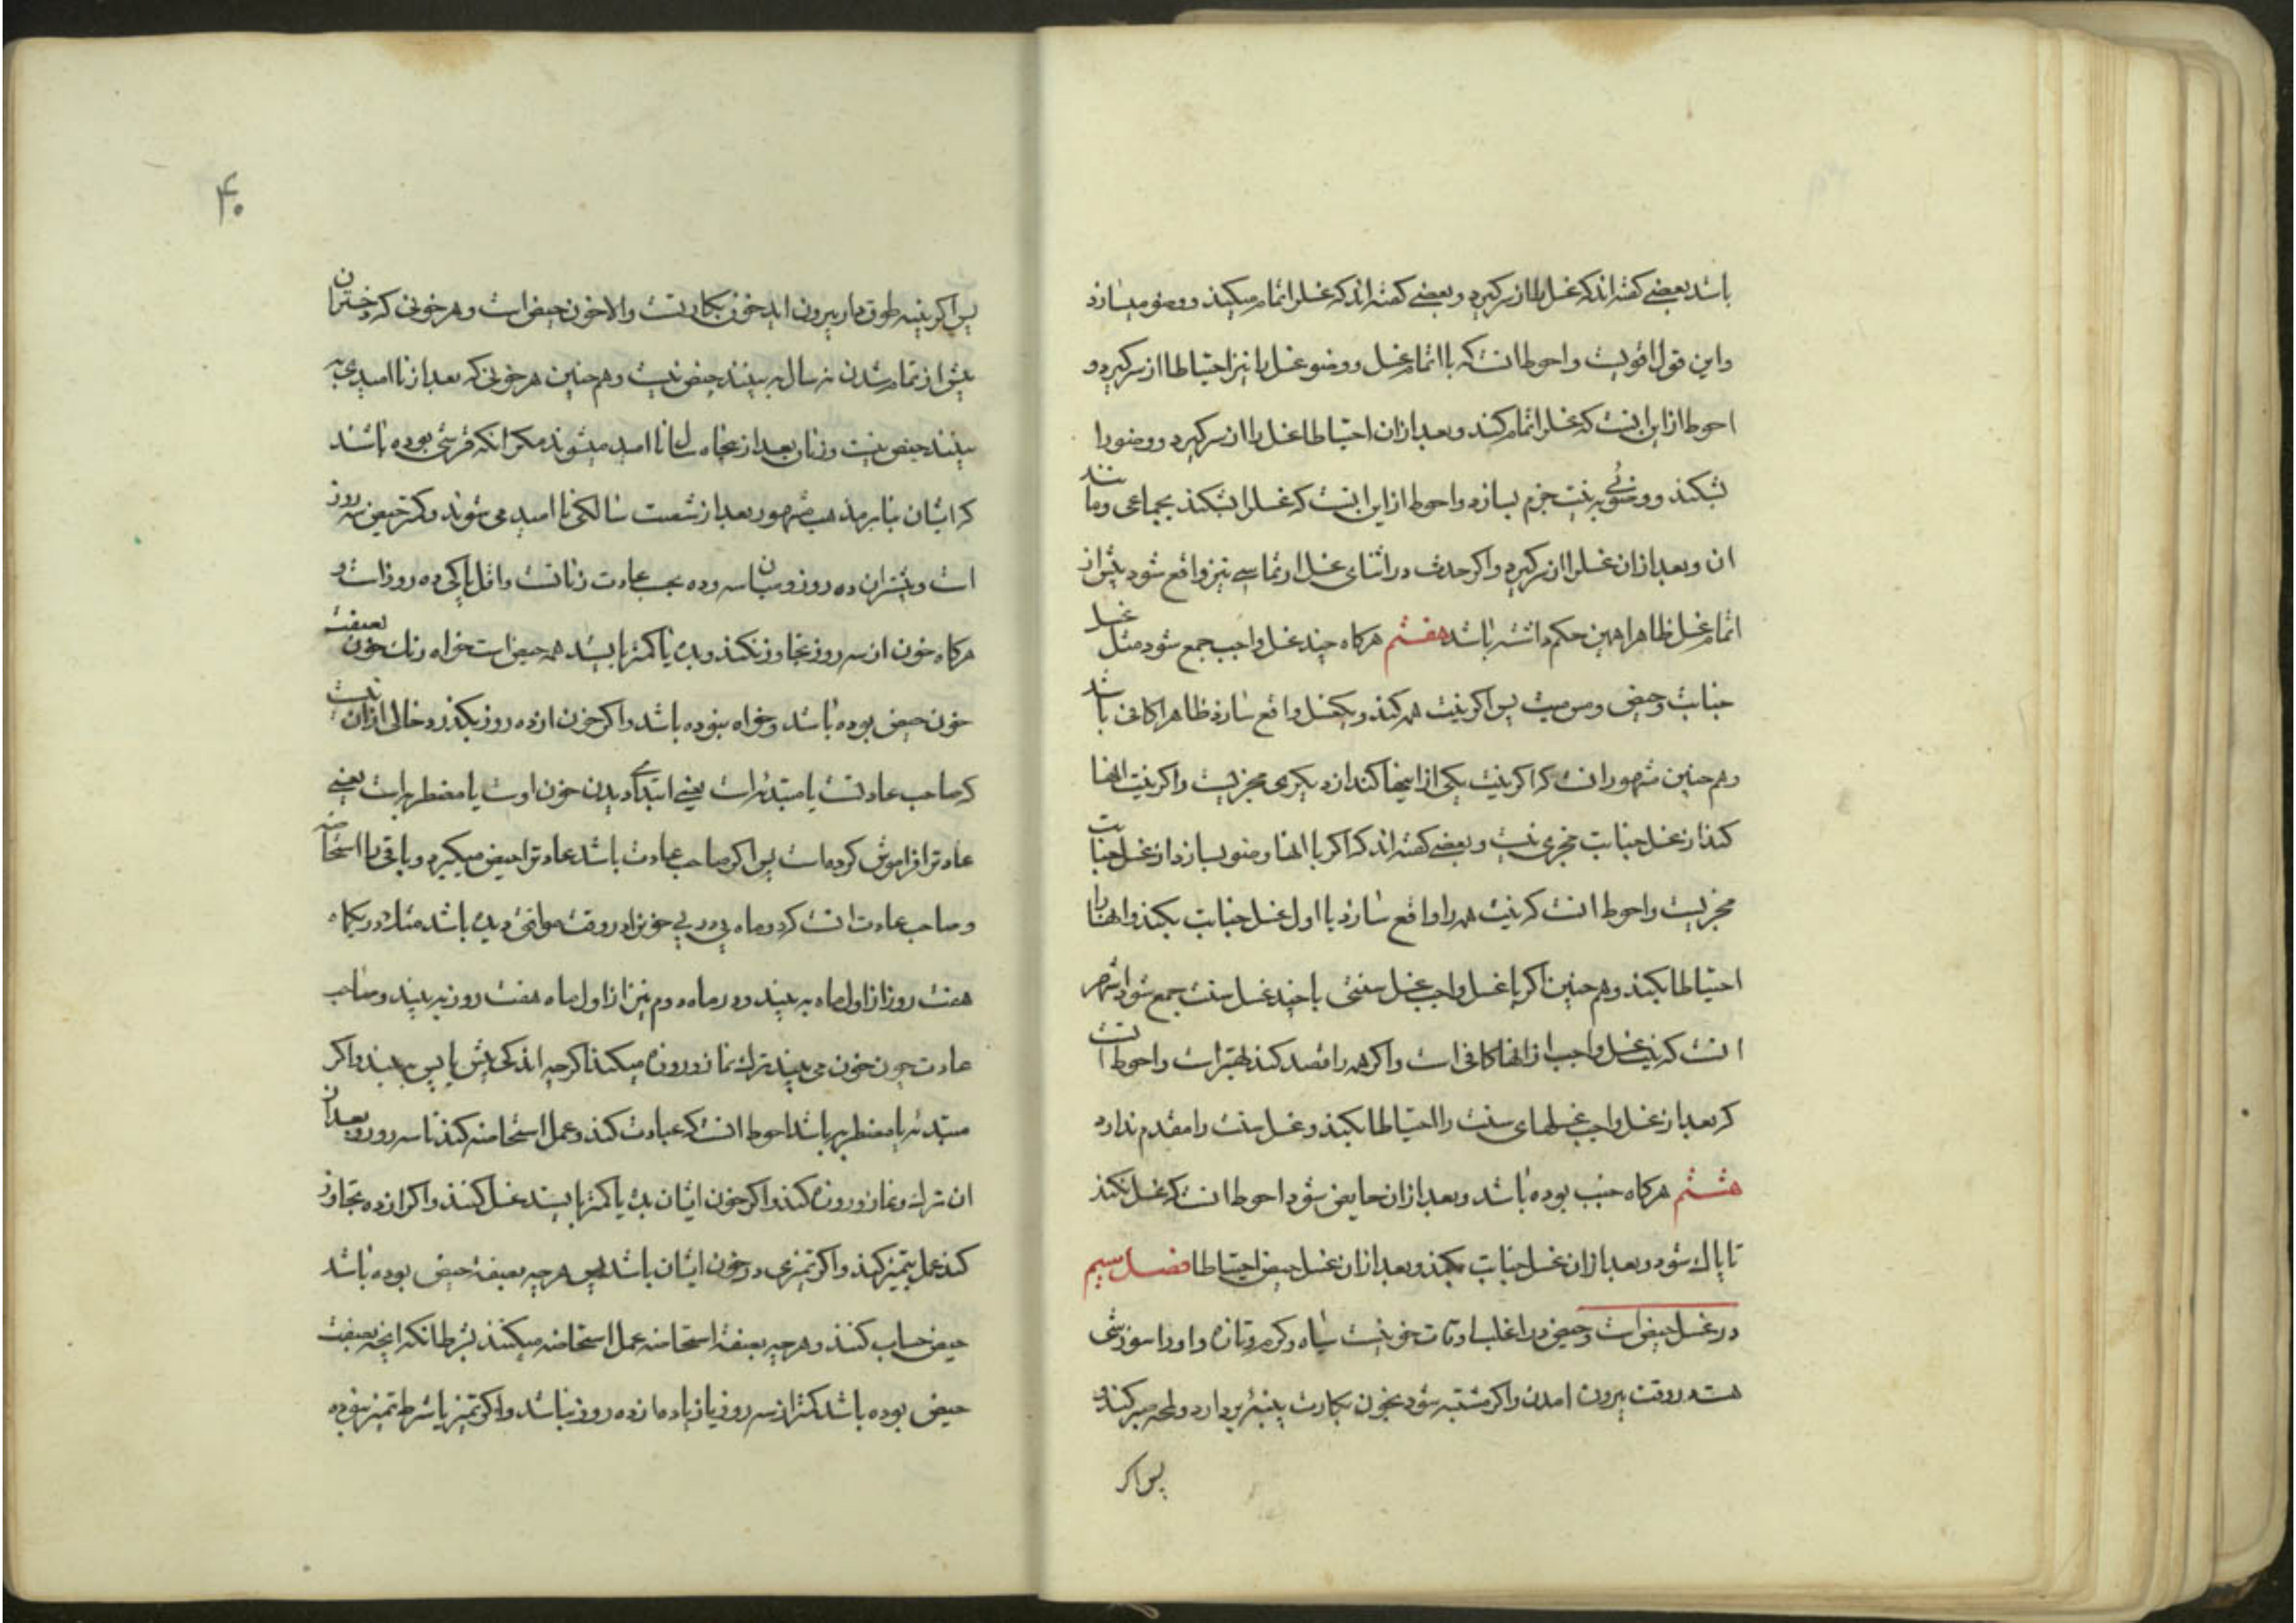 باشد بعضے کفته اند که غسل را از سر کیرد و بعضے کفته اند که غسل را تمام میکند و وضو میسازد
و این قول اقویست و احوط انست که با اتمام غسل و وضو غسل را نیز احتیاطا از سر کیرد و
احوط از این انست که غسل را تمام کند و بعد ازان احتیاطا غسل را از سر کیرد و وضو را
بشکند و وضوئے به نیت جزم بسازد و احوط از این انست که غسل را بشکند بجماعی و مانند
ان و بعد ازان غسل را از سر کیرد و اکر حدث در اثنای غسل ارتماسے نیز واقع شود پیش از
اتمام غسل ظاهرا همین حکم داشته باشد هفتم هرکاه چند غسل واجب جمع شود مثل غسل
جنابت و حیض و مس میت پس اکر نیت همه کند و یکغسل واقع سازد ظاهرا کافی باشد
و هم چنین مشهور انست که اکر نیت یکی از اینها کند از دیکری مجزیست و اکر نیت انها
کند از غسل جنابت مجزی نیست و بعضے کفته اند که اکر با انها وضو بسازد از غسل جنابت
مجزیست و احوط انست که نیت همه را واقع سازد یا اول غسل جنابت بکند و انها را
احتیاطا بکند و هم چنین اکر با غسل واجب غسل سنتی یا چند غسل سنت جمع شود اشهر
انست که نیت غسل واجب از انها کافی است و اکر همه را قصد کند بهتر است و احوط انست
که بعد از غسل واجب غسلهای سنت را احتیاطا بکند و غسل سنت را مقدم ندارد
هشتم هرکاه جنب بوده باشد و بعد ازان حایض شود احوط انست که غسل نکند
تا پاک شود و بعد ازان غسل جنابت بکند و بعد ازان غسل حیض احتیاطا فصل سیم
در غسل حیض است و حیض در اغلب اوقات خونیست سیاه و کرم و تازه و او را سوزشی
هست در وقت بیرون امدن و اکر مشتبه شود بخون بکارت پنبه بردارد و لمحه صبر کند
پس اکر
۴۰
پس اکر پنبه طوق دار بیرون اید خون بکارتست و الا خون حیض است و هر خونی که دختران
پیش از تمام شدن نه سال به بینند حیض نیست و هم چنین هر خونی که بعد از نا امیدی به
بینند حیض نیست و زنان بعد از پنجاه سال نا امید میشوند مکر انکه قرشی بوده باشد
که ایشان بنا بر مذهب مشهور بعد از شصت سالکی نا امید می شوند و کمتر حیض سه روز
است و بیشتر ان ده روز و میان سه و ده بحسب عادت زنانست و اقل پاکی ده روز است و
هرکاه خون از سه روز تجاوز نکند و بده یا کمتر بایستد همه حیض است خواه رنك خون بصفت
خون حیض بوده باشد و خواه نبوده باشد و اکر خون از ده روز بکذرد خالی ازان نیست
که صاحب عادتست یا مبتدئه است یعنے ابتدای دیدن خون اوست یا مضطربه است یعنے
عادت را فراموش کرده است پس اکر صاحب عادت باشد عادت را حیض میکیرد و باقی را استحاضه
و صاحب عادت انست که دو ماه پی در پے خون را در وقت موافق دیده باشد مثلا در یکماه
هفت روز از اول ماه به بیند و در ماه دوم نیز از اول ماه هفت روز به بیند و صاحب
عادت چون خون می بیند ترك نماز و روزه میکند اکر چه اندکی پیش یا پس به بیند و اکر
مبتدئه یا مضطربه باشد احوط انست که عبادت کند و عمل استحاضه کند تا سه روز و بعد از
ان ترك نماز و روزه کند و اکر خون ایشان بده یا کمتر بایستد غسل کنند و اکر از ده تجاوز
کند عمل بتمیز کند و اکر تمیزی در خون ایشان باشد پس هر چه بصفة حیض بوده باشد
حیض حساب کنند و هر چه بصفة استحاضه عمل استحاضه میکنند بشرط انکه انچه بصفت
حیض بوده باشد کمتر از سه روز یا زیاده از ده روز نباشد و اکر تمیز یا شرط تمیز نبوده